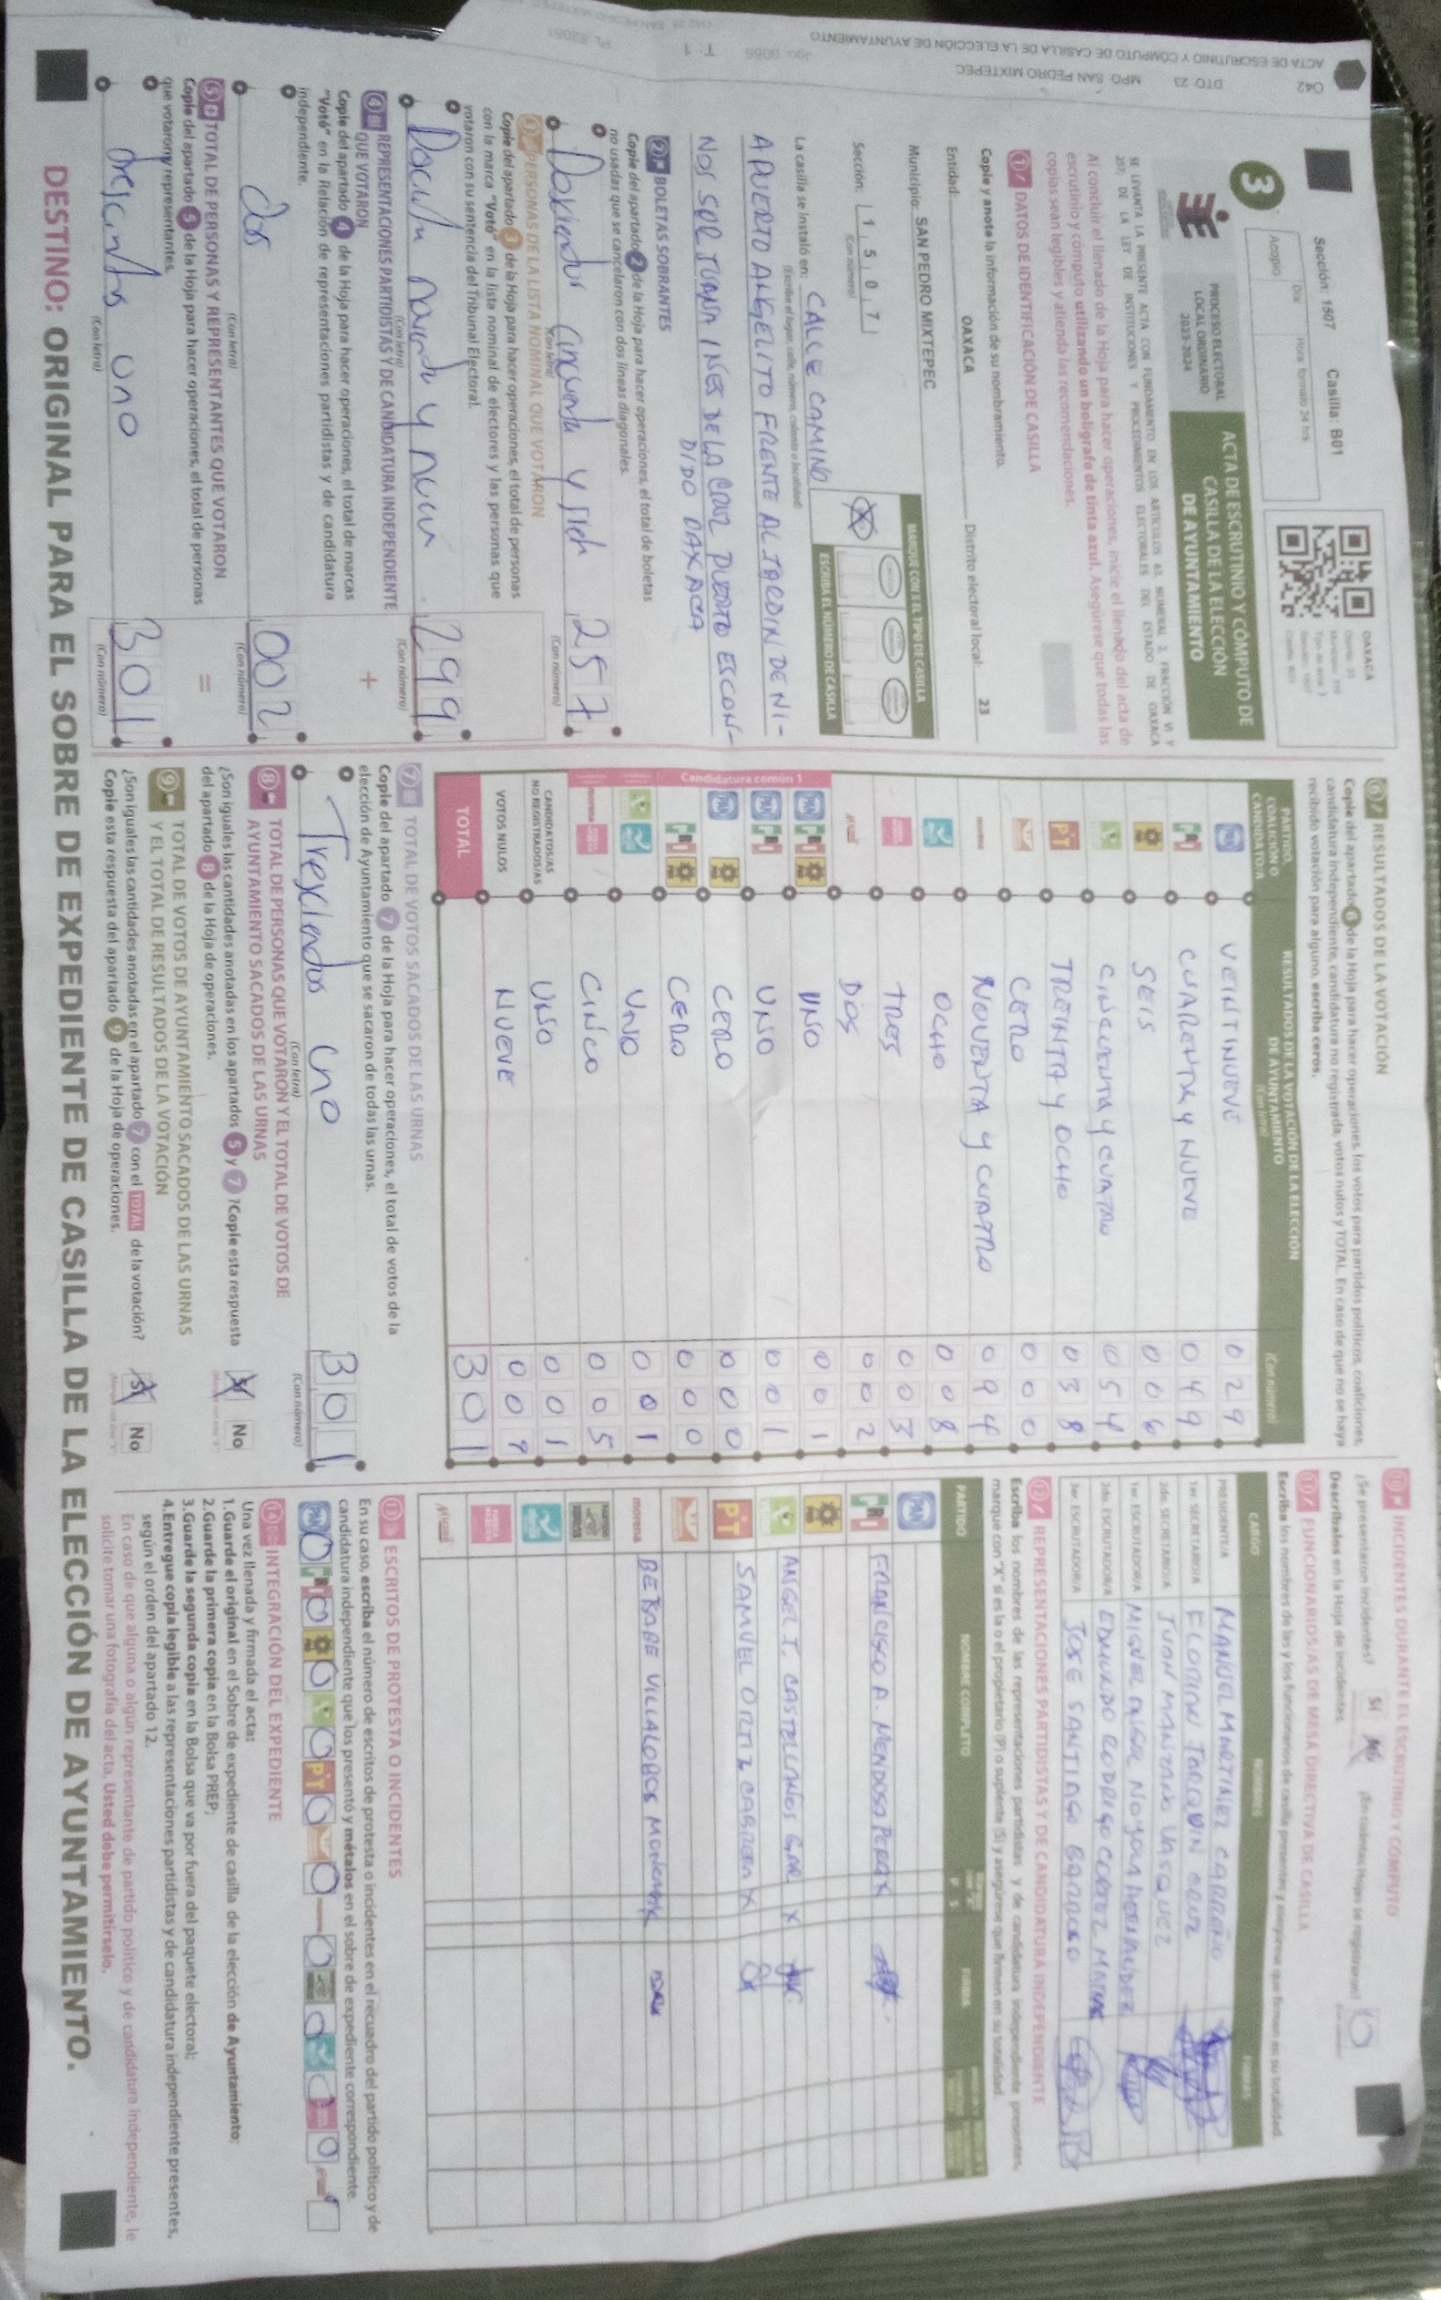 ACTA DE ESCRUTINIO Y CÓMPUTO DE CASILLA DE LA ELECCIÓN DE AYUNTAMIENTO
042 DTO 23 MPO SAN PEDRO MIXTEPEC
Sección: 1507 Casilla: B01
Acopio
Día
Hora: formato 24 hrs
OAXACA
3
PROCESO ELECTORAL
LOCAL ORDINARIO
2023-2024
ACTA DE ESCRUTINIO Y CÓMPUTO DE
CASILLA DE LA ELECCIÓN
DE AYUNTAMIENTO
Al concluir el llenado de la Hoja para hacer operaciones, inicie el llenado del acta de
escrutinio y cómputo utilizando un bolígrafo de tinta azul. Asegúrese que todas las
copias sean legibles y atienda las recomendaciones.
1 DATOS DE IDENTIFICACIÓN DE CASILLA
Copie y anote la información de su nombramiento.
Entidad: OAXACA Distrito electoral local: 23
Municipio: SAN PEDRO MIXTEPEC
Sección: 1 5 0 7
(Con número)
MARQUE CON X EL TIPO DE CASILLA
ESCRIBA EL NÚMERO DE CASILLA
La casilla se instaló en: CALLE CAMINO
A PUERTO ANGELITO FRENTE AL JARDIN DE NI-
ÑOS SOR JUANA INES DE LA CRUZ PUERTO ESCON-
DIDO OAXACA
2 BOLETAS SOBRANTES
Copie del apartado 2 de la Hoja para hacer operaciones, el total de boletas
no usadas que se cancelaron con dos líneas diagonales.
Doscientos cincuenta y siete 257
(Con letra) (Con número)
3 PERSONAS DE LA LISTA NOMINAL QUE VOTARON
Copie del apartado 3 de la Hoja para hacer operaciones, el total de personas
con la marca "Votó" en la lista nominal de electores y las personas que
votaron con su sentencia del Tribunal Electoral.
noventa y nueve 299
(Con letra) (Con número)
+
4 REPRESENTACIONES PARTIDISTAS Y DE CANDIDATURA INDEPENDIENTE
QUE VOTARON
Copie del apartado 4 de la Hoja para hacer operaciones, el total de marcas
"Votó" en la Relación de representaciones partidistas y de candidatura
independiente.
dos 002
(Con letra) (Con número)
=
5 TOTAL DE PERSONAS Y REPRESENTANTES QUE VOTARON
Copie del apartado 5 de la Hoja para hacer operaciones, el total de personas
que votaron y representantes.
uno 301
(Con letra) (Con número)
6 RESULTADOS DE LA VOTACIÓN
Copie del apartado 6 de la Hoja para hacer operaciones, los votos para partidos políticos, coaliciones,
candidatura independiente, candidatura no registrada, votos nulos y TOTAL. En caso de que no se haya
recibido votación para alguno, escriba ceros.
PARTIDO, COALICIÓN O CANDIDATO/A
RESULTADOS DE LA VOTACIÓN DE LA ELECCIÓN
DE AYUNTAMIENTO
(Con letra) (Con número)
PAN VEINTINUEVE 029
PRI CUARENTA Y NUEVE 049
SEIS 006
CINCUENTA Y CUATRO 054
PT TREINTA Y OCHO 038
CERO 000
morena NOVENTA Y CUATRO 094
OCHO 008
TRES 003
DOS 002
Candidatura común 1
UNO 001
UNO 001
CERO 000
CERO 000
UNO 001
CINCO 005
CANDIDATOS/AS NO REGISTRADOS/AS UNO 001
VOTOS NULOS NUEVE 009
TOTAL 301
7 TOTAL DE VOTOS SACADOS DE LAS URNAS
Copie del apartado 7 de la Hoja para hacer operaciones, el total de votos de la
elección de Ayuntamiento que se sacaron de todas las urnas.
Trescientos uno 301
(Con letra) (Con número)
8 TOTAL DE PERSONAS QUE VOTARON Y EL TOTAL DE VOTOS DE
AYUNTAMIENTO SACADOS DE LAS URNAS
¿Son iguales las cantidades anotadas en los apartados 5 y 7? Copie esta respuesta
del apartado 8 de la Hoja de operaciones.
Sí No
9 TOTAL DE VOTOS DE AYUNTAMIENTO SACADOS DE LAS URNAS
Y EL TOTAL DE RESULTADOS DE LA VOTACIÓN
¿Son iguales las cantidades anotadas en el apartado 7 con el TOTAL de la votación?
Copie esta respuesta del apartado 9 de la Hoja de operaciones.
Sí No
10 INCIDENTES DURANTE EL ESCRUTINIO Y CÓMPUTO
¿Se presentaron incidentes? Sí No
Descríbalos en la Hoja de incidentes.
11 FUNCIONARIOS/AS DE MESA DIRECTIVA DE CASILLA
CARGO NOMBRES FIRMAS
PRESIDENTE/A MANUEL MARTINEZ CARREÑO
1er SECRETARIO/A
2do. SECRETARIO/A JUAN MANZANO VASQUEZ
1er ESCRUTADOR/A MIGUEL
2do. ESCRUTADOR/A EDMUNDO RODRIGO CORTEZ
3er ESCRUTADOR/A JOSE SANTIAGO
12 REPRESENTACIONES PARTIDISTAS Y DE CANDIDATURA INDEPENDIENTE
Escriba los nombres de las representaciones partidistas y de candidatura independiente presentes,
marque con "X" si es la o el propietario (P) o suplente (S) y asegúrese que firmen en su totalidad.
PARTIDO NOMBRE COMPLETO P S FIRMA
PAN
PRI FRANCISCO A. MENDOSA X
ANGEL T. CASTELLANOS X
PT SAMUEL ORTIZ X
morena BETSABE VILLALOBOS
13 ESCRITOS DE PROTESTA O INCIDENTES
En su caso, escriba el número de escritos de protesta o incidentes en el recuadro del partido político y de
candidatura independiente que los presentó y métalos en el sobre de expediente correspondiente.
14 INTEGRACIÓN DEL EXPEDIENTE
Una vez llenada y firmada el acta:
1.Guarde el original en el Sobre de expediente de casilla de la elección de Ayuntamiento;
2.Guarde la primera copia en la Bolsa PREP;
3.Guarde la segunda copia en la Bolsa que va por fuera del paquete electoral;
4.Entregue copia legible a las representaciones partidistas y de candidatura independiente presentes,
según el orden del apartado 12.
En caso de que alguna o algún representante de partido político y de candidatura independiente, le
solicite tomar una fotografía del acta, Usted debe permitírselo.
DESTINO: ORIGINAL PARA EL SOBRE DE EXPEDIENTE DE CASILLA DE LA ELECCIÓN DE AYUNTAMIENTO.